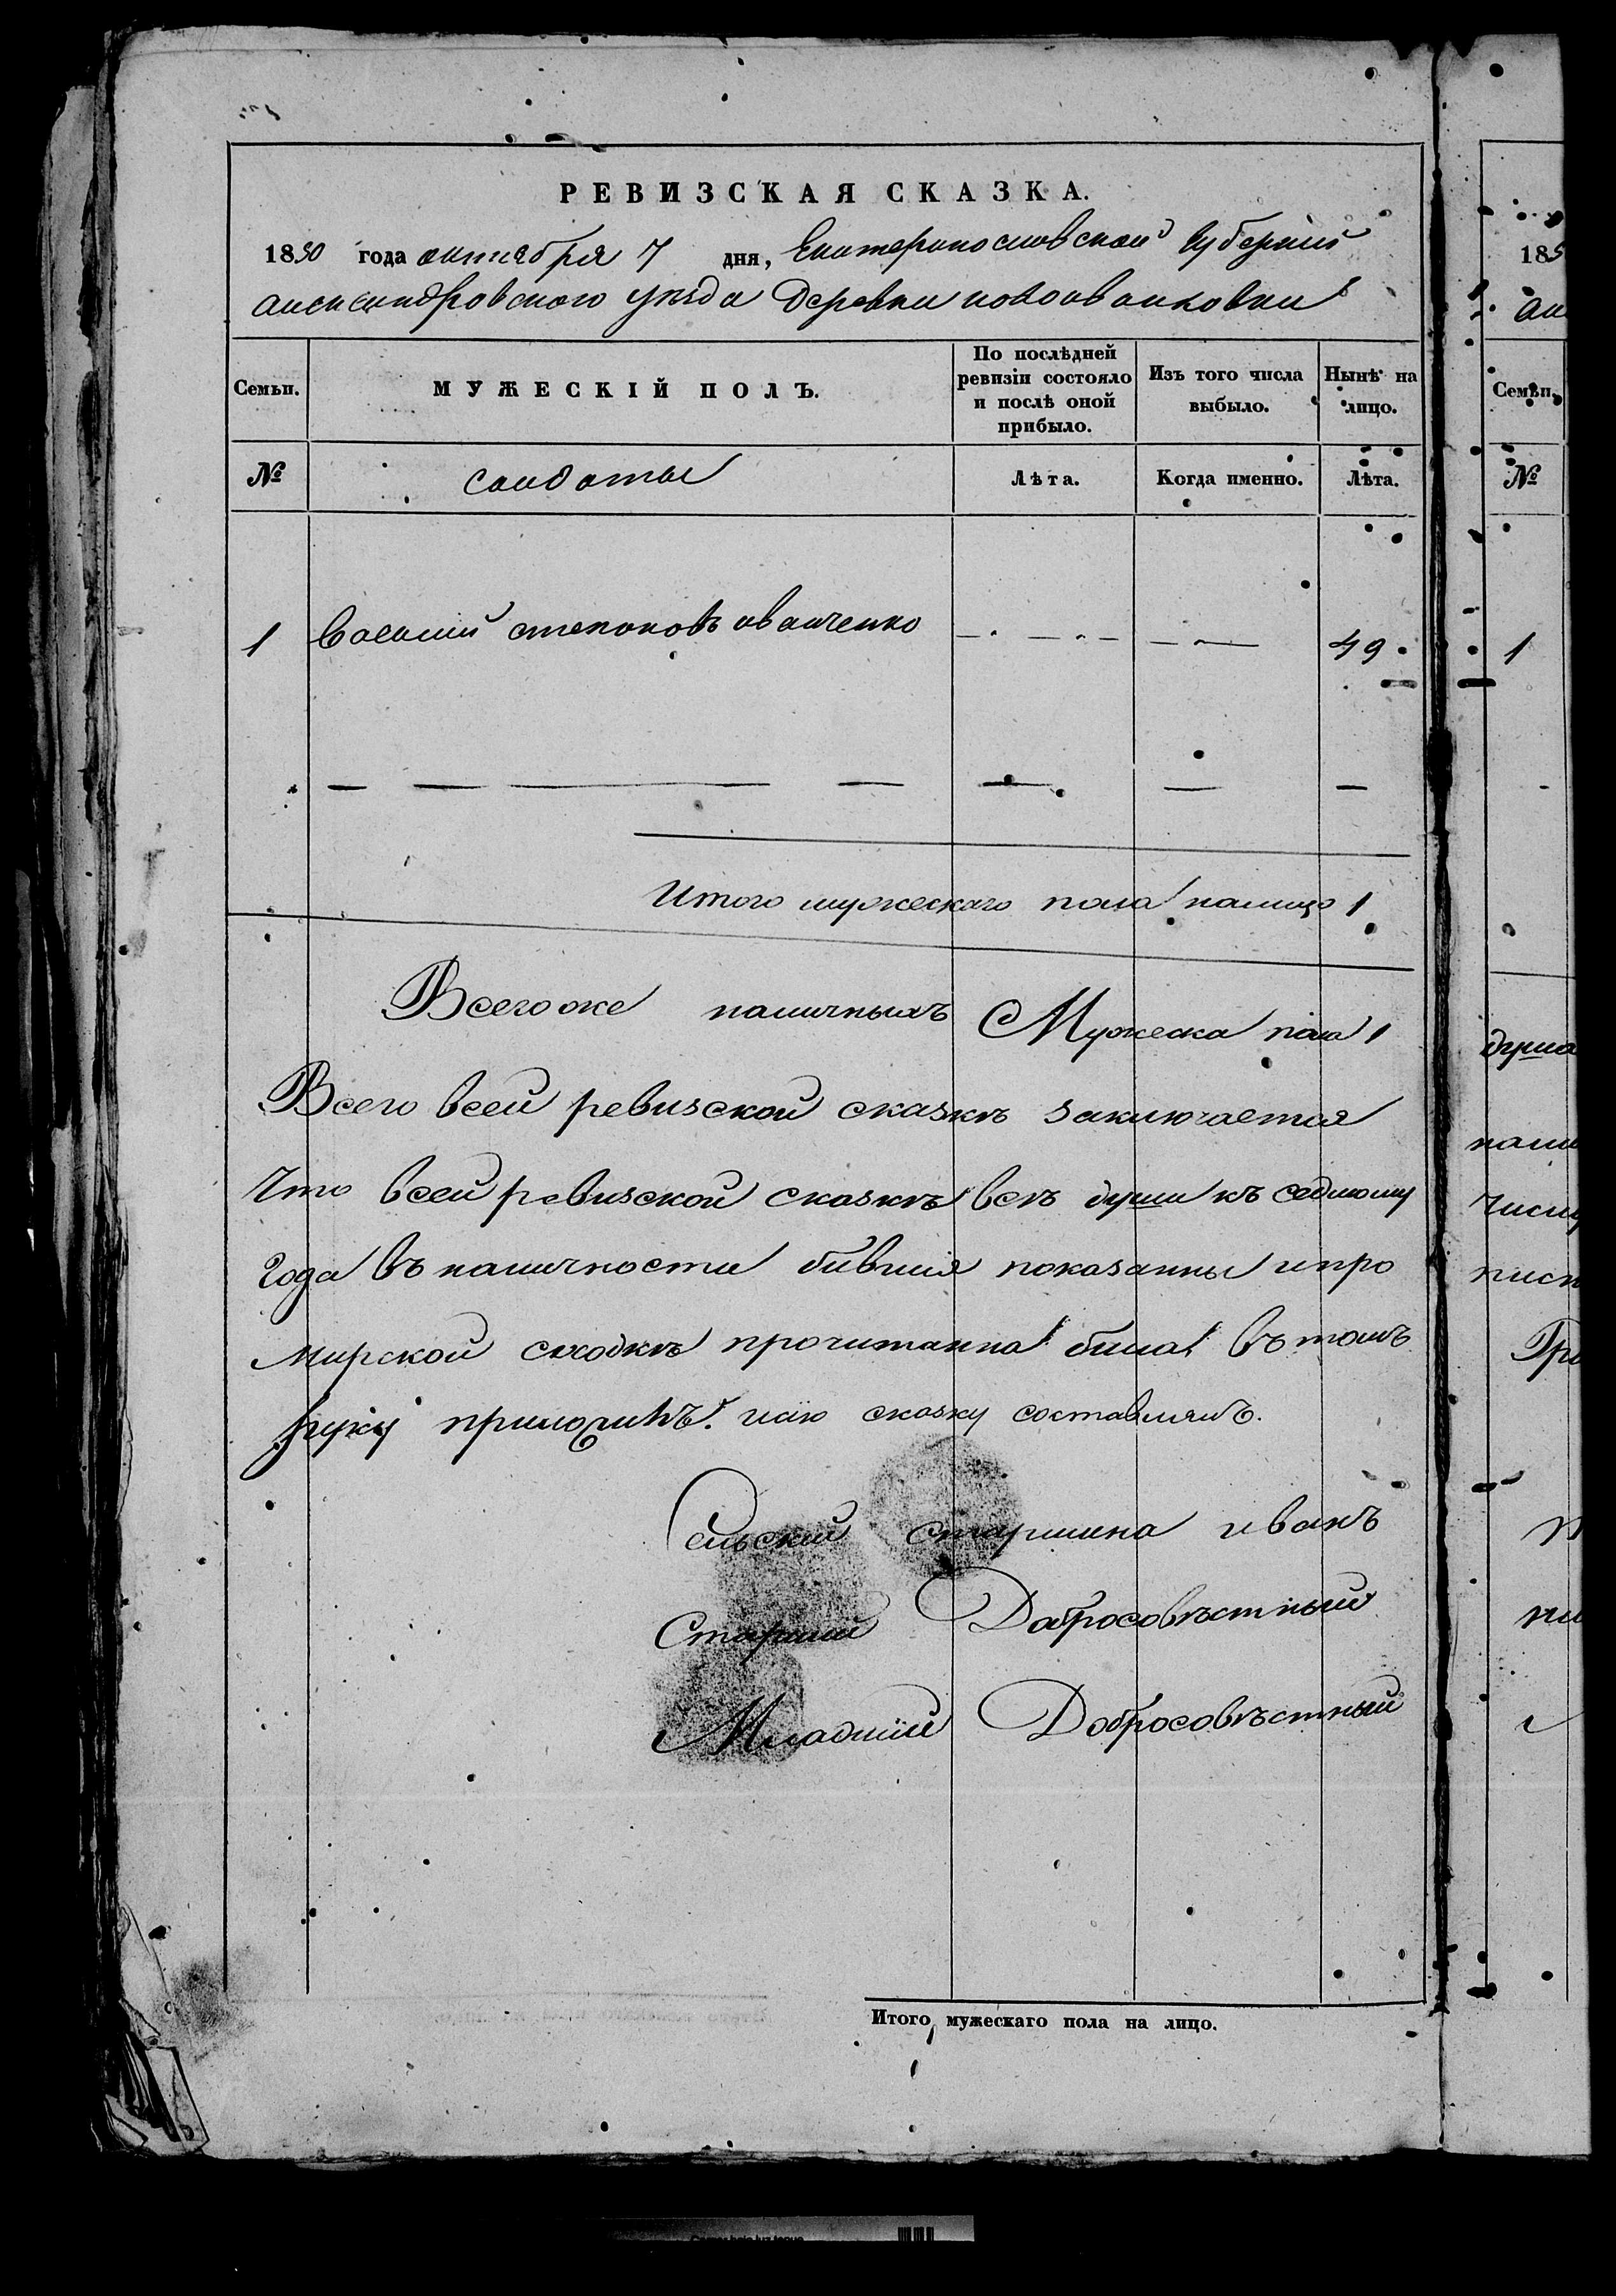 РЕВИЗСКАЯ СКАЗКА.
1850 года октября 7 дня, Екатеринославской губернии
александровского уезда деревни новоивановки
Семьи. МУЖЕСКІЙ ПОЛЪ. По послѣдней ревизіи состояло и послѣ оной прибыло. Изъ того числа выбыло. Нынѣ на лицо.
№ солдаты Лѣта. Когда именно. Лѣта.
1 Василий степановъ иванченко 49
Итого мужескаго пола налицо 1
Всегоже наличныхъ Мужеска пола 1
Всего всей ревизской сказкѣ заключается
Что всей ревизской сказкѣ всѣ души къ седмому
года въ наличности бившія показанны ипро
мирской сходкѣ прочитанна била въ томъ
руку приложилъ. исію сказку составлялъ.
Сельский старшина иванъ
Старший Добросовѣстный
Младшій Добросовѣстный
Итого мужескаго пола на лицо.
185
Семьи.
№
1